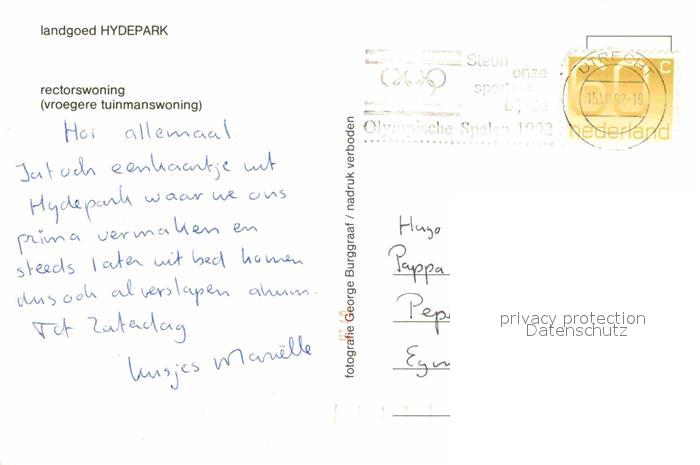 landgoed HYDEPARK
rectorswoning
(vroegere tuinmanswoning)
Hoi allemaal
Jatoch een kaartje uit
Hydepark waar we ons
prima vermaken en
steeds later uit bed komen
dus ook al verslapen ahum.
Tot Zaterdag
kusjes Mariëlle
fotografie George Burggraaf / nadruk verboden
Steun
onze
sporters
bij de
Olympische Spelen 1992
UTRECHT
92-19
60 C
nederland
Hugo
Pappa
Pep
privacy protection
Datenschutz